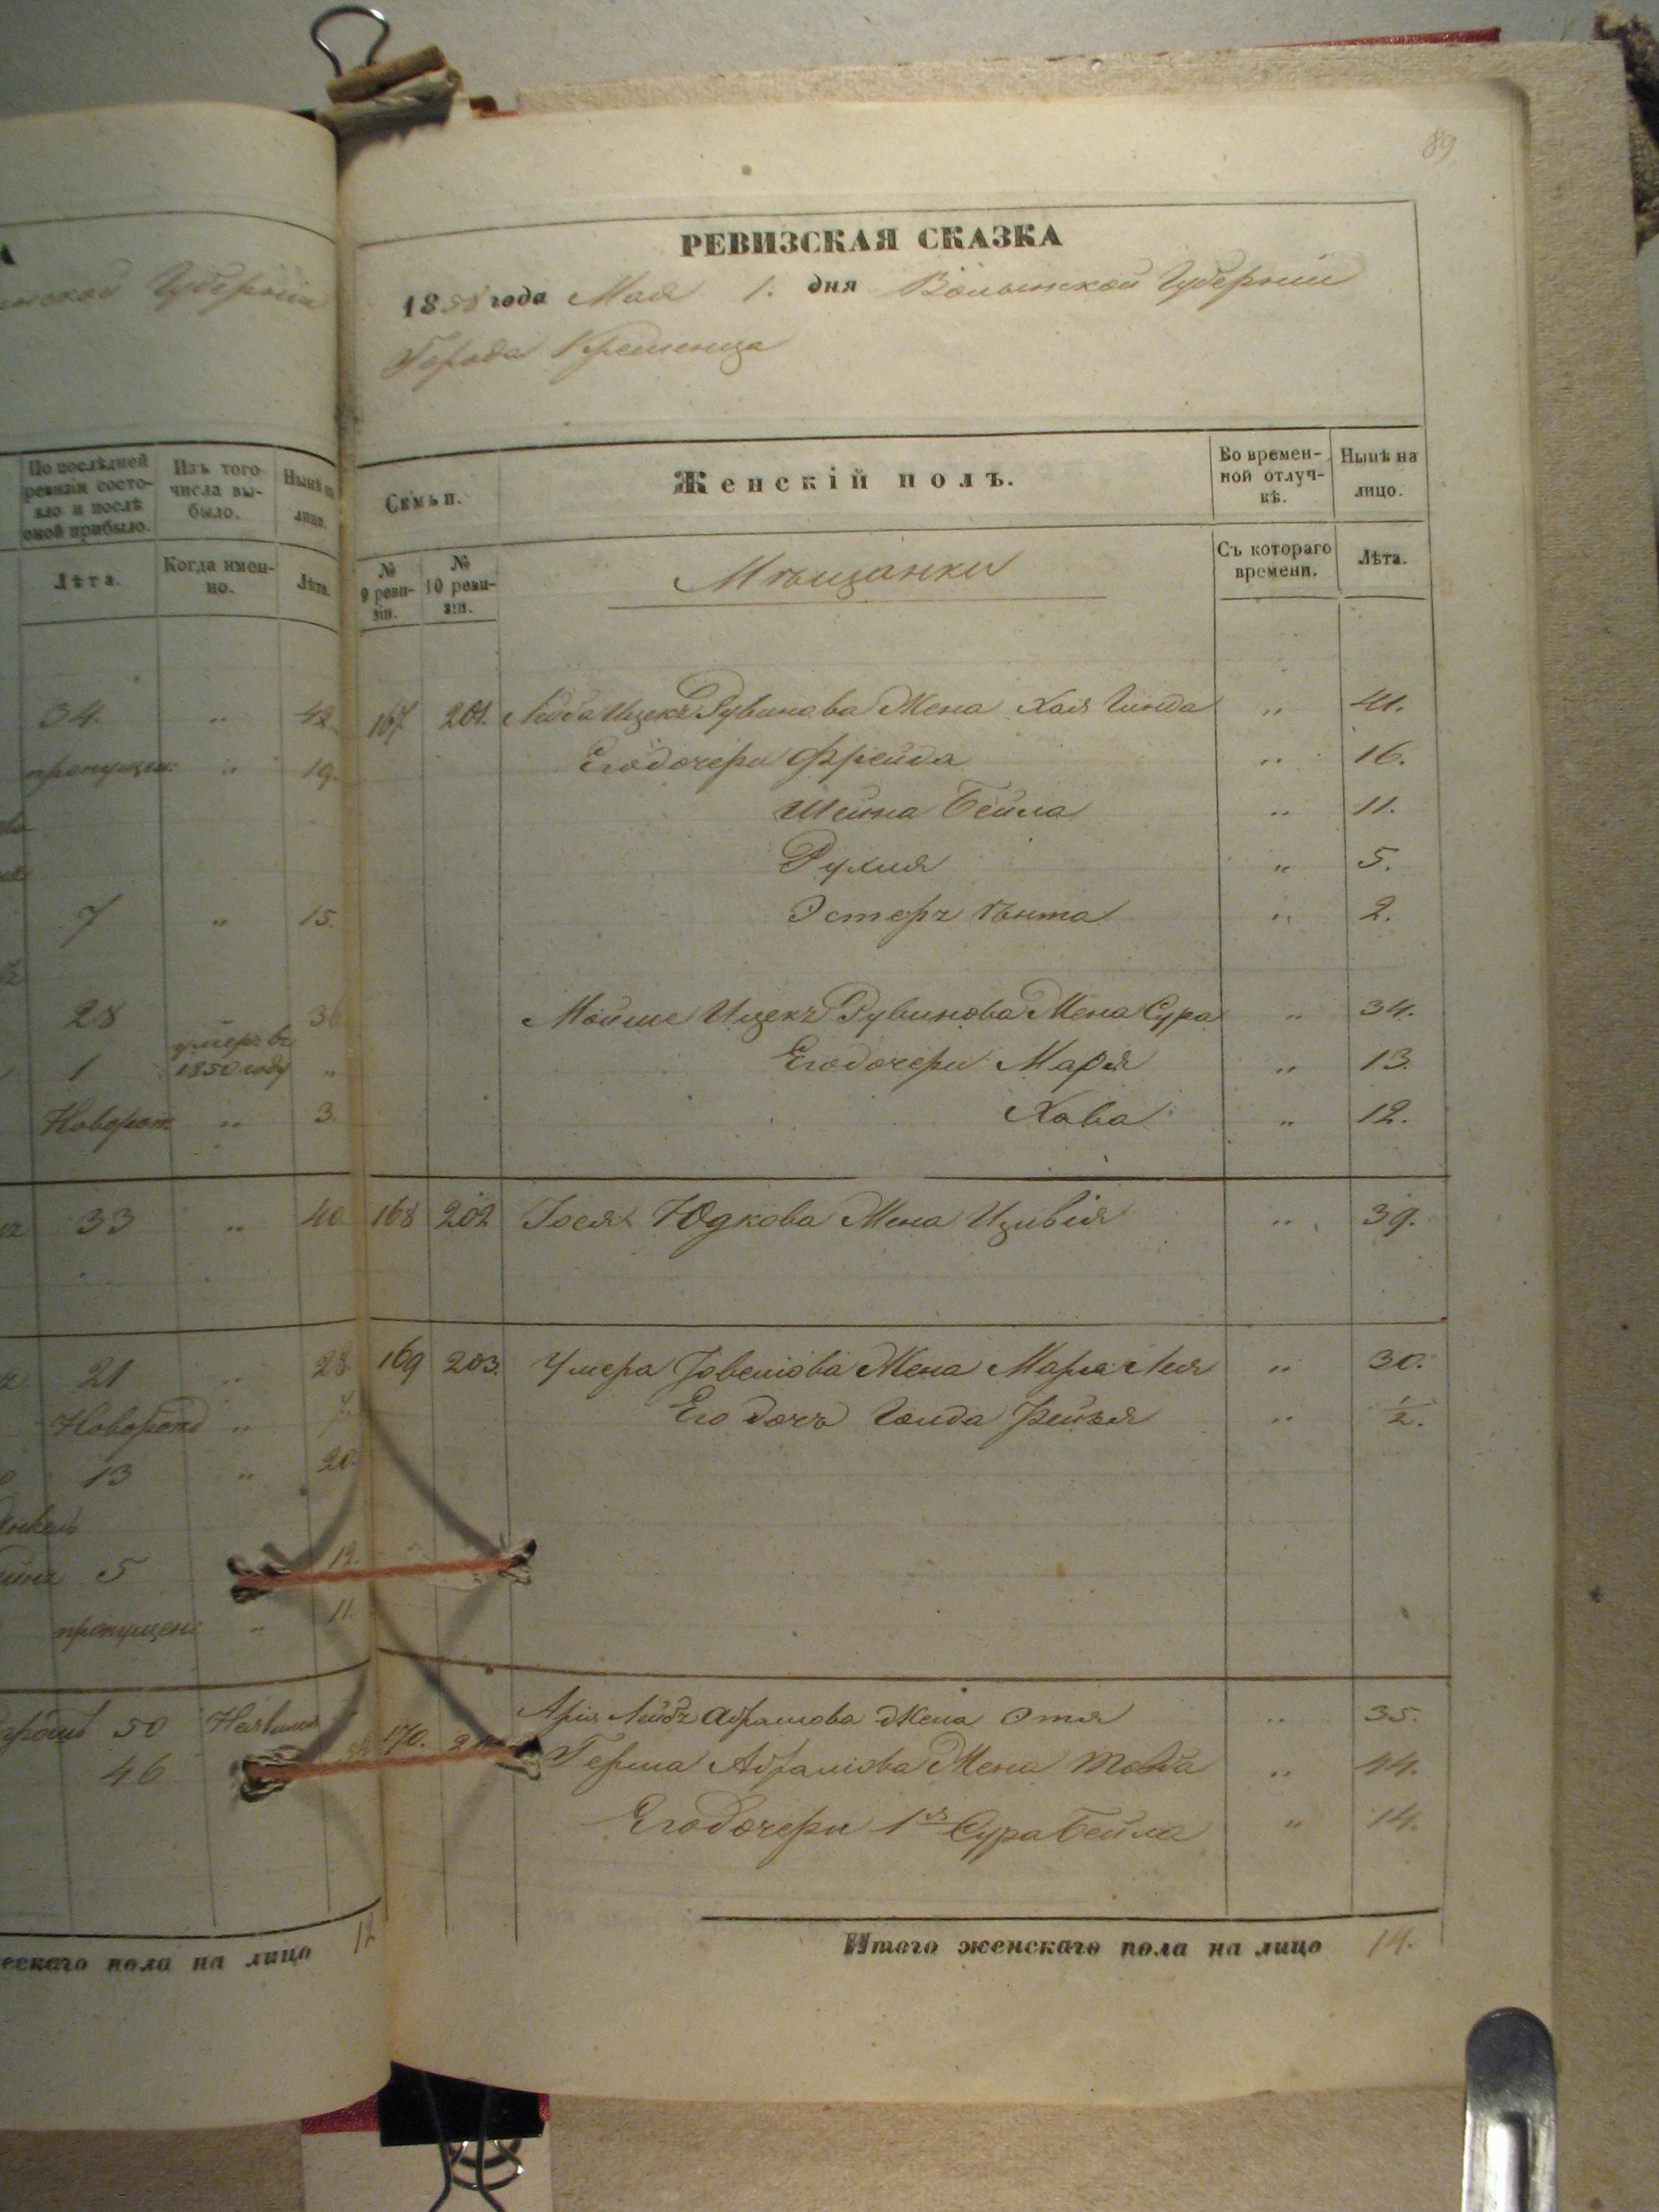 89
РЕВИЗСКАЯ СКАЗКА
1858 года Мая 1. дня Волынской Губернии
Города Кременца
Семьи. Женскій полъ. Во временной отлучкѣ. Нынѣ на лицо.
№ 9 ревизіи. № 10 ревизіи. Мѣщанки Съ котораго времени. Лѣта.
167 201. Ицекъ Рувинова Жена Хая Гинда " 41.
Его дочери Фрейда " 16.
Шейна Бейла " 11.
Рухля " 5.
Эстеръ Ѣнта " 2.
Мойше Ицекъ Рувинова Жена Сура " 34.
Его дочери Марія " 13.
Хава " 12.
168 202 Іосля Юдкова Жена Цивія " 39.
169 203. Умера Жена Марія Лея " 30.
Его дочь Голда Рейзя " ½.
170. Арія Лейбъ Абрамова Жена Этя " 35.
Герша Абрамова Жена Товба " 44.
Его дочери 1я Сура Бейла " 14.
Итого женскаго пола на лицо 14.
Губерніи
По послѣдней ревизіи состояло и послѣ оной прибыло. Изъ того числа выбыло. Нынѣ на лицо.
Лѣта. Когда именно. Лѣта.
34. " 42
пропущен: " 19.
7 " 15.
28 36
1 умеръ въ 1850 году "
Новорож " 3.
33 " 40.
21 " 28.
Новорожд " 7.
13 " 20.
5 12.
пропущен: " 11.
50
46
ческаго пола на лицо 12